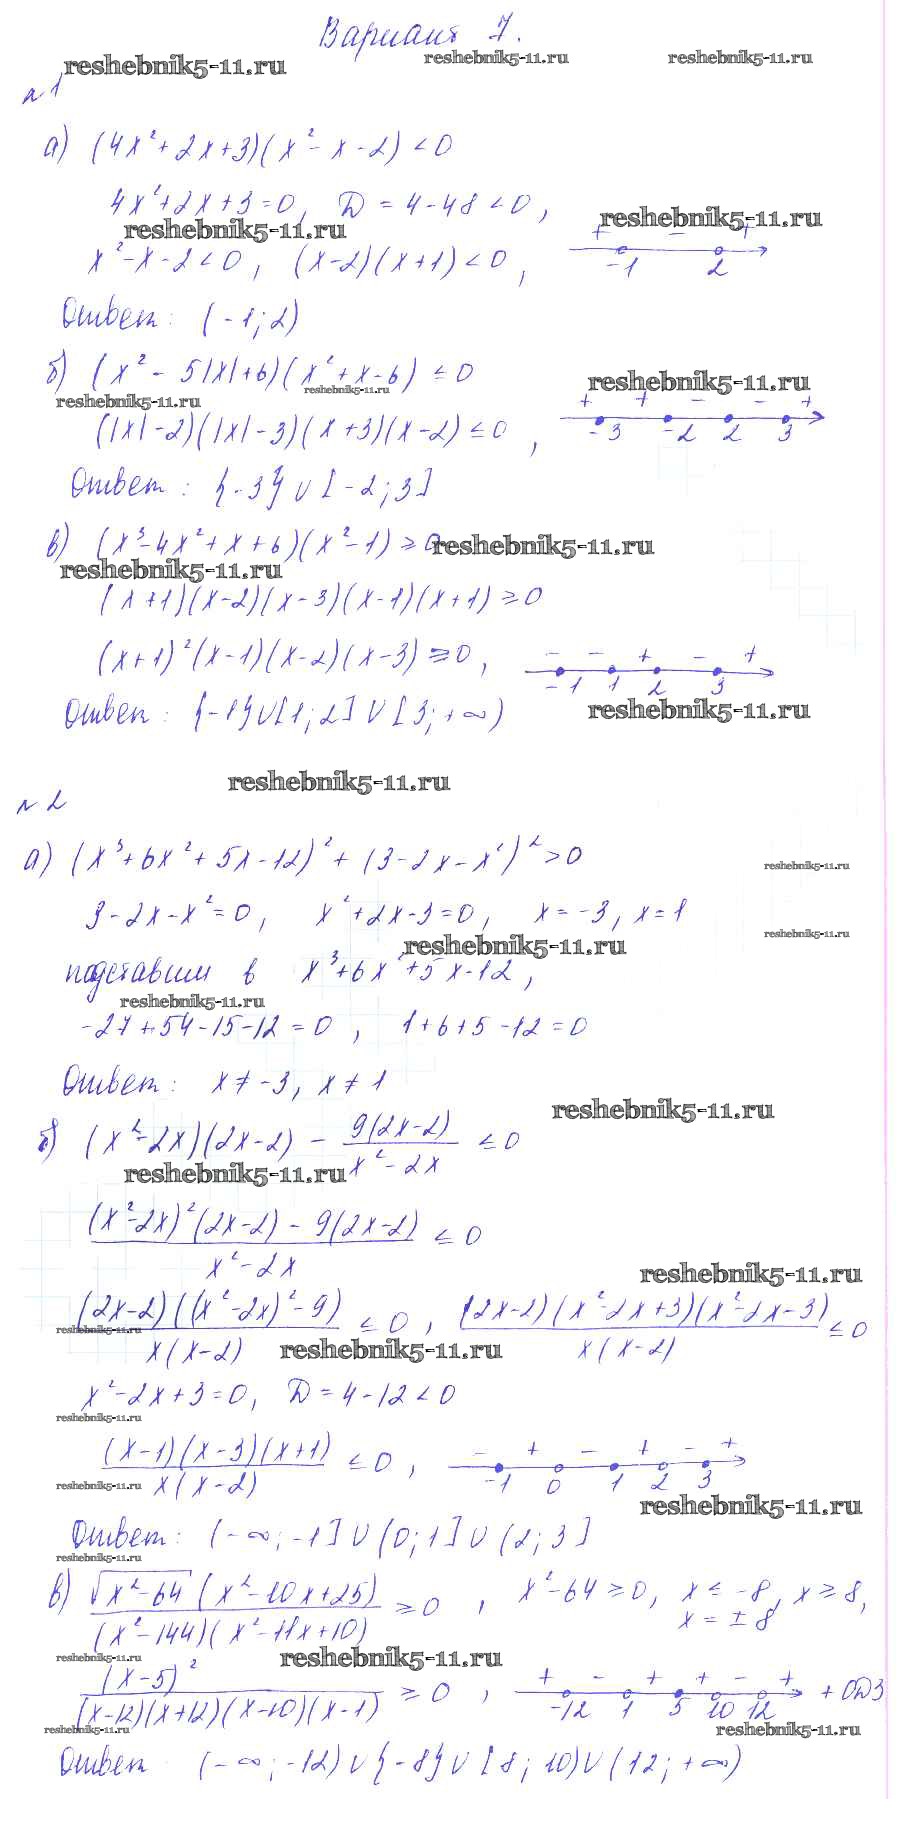 Вариант 7.
reshebnik5-11.ru reshebnik5-11.ru reshebnik5-11.ru
№1
а) (4x²+2x+3)(x²-x-2)<0
4x²+2x+3=0, D=4-48<0,
reshebnik5-11.ru reshebnik5-11.ru
x²-x-2<0, (x-2)(x+1)<0, + - + -1 2
Ответ: (-1;2)
б) (x²-5|x|+6)(x²+x-6)≤0
reshebnik5-11.ru reshebnik5-11.ru reshebnik5-11.ru
(|x|-2)(|x|-3)(x+3)(x-2)≤0, + + - - + -3 -2 2 3
Ответ: {-3}∪[-2;3]
в) (x³-4x²+x+6)(x²-1)≥0
reshebnik5-11.ru reshebnik5-11.ru
(x+1)(x-2)(x-3)(x-1)(x+1)≥0
(x+1)²(x-1)(x-2)(x-3)≥0, - - + - + -1 1 2 3
Ответ: {-1}∪[1;2]∪[3;+∞)
reshebnik5-11.ru
reshebnik5-11.ru
№2
а) (x³+6x²+5x-12)²+(3-2x-x²)²>0
reshebnik5-11.ru
3-2x-x²=0, x²+2x-3=0, x=-3, x=1
reshebnik5-11.ru reshebnik5-11.ru
подставим в x³+6x²+5x-12,
reshebnik5-11.ru
-27+54-15-12=0, 1+6+5-12=0
Ответ: x≠-3, x≠1
reshebnik5-11.ru
б) (x²-2x)(2x-2) - 9(2x-2)/(x²-2x) ≤0
reshebnik5-11.ru
((x²-2x)²(2x-2)-9(2x-2))/(x²-2x) ≤0
reshebnik5-11.ru
(2x-2)((x²-2x)²-9)/(x(x-2)) ≤0, (2x-2)(x²-2x+3)(x²-2x-3)/(x(x-2)) ≤0
reshebnik5-11.ru reshebnik5-11.ru
x²-2x+3=0, D=4-12<0
reshebnik5-11.ru
(x-1)(x-3)(x+1)/(x(x-2)) ≤0, - + - + - + -1 0 1 2 3
reshebnik5-11.ru reshebnik5-11.ru
Ответ: (-∞;-1]∪(0;1]∪(2;3]
reshebnik5-11.ru
в) √(x²-64)(x²-10x+25)/((x²-144)(x²-11x+10)) ≥0, x²-64≥0, x≤-8, x≥8,
x=±8
reshebnik5-11.ru reshebnik5-11.ru
(x-5)²/((x-12)(x+12)(x-10)(x-1)) ≥0, + - + + - + -12 1 5 10 12 +ОДЗ
reshebnik5-11.ru reshebnik5-11.ru
Ответ: (-∞;-12)∪{-8}∪[8;10)∪(12;+∞)